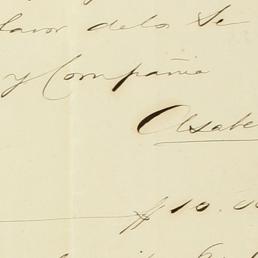 favor delos Se
y Compañia
Asabe
# 10.00